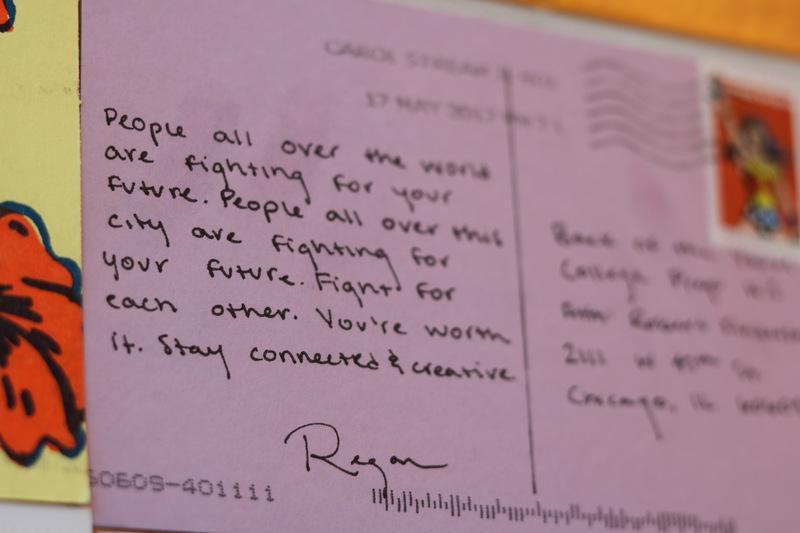 CAROL STREAM
17 MAY 2017
People all over the world
are fighting for your
future. People all over this
city are fighting for
your future. Fight for
each other. You're worth
it. Stay connected & creative
Regan
60609-401111
Back of the
College Prep
2111 W
Chicago, IL